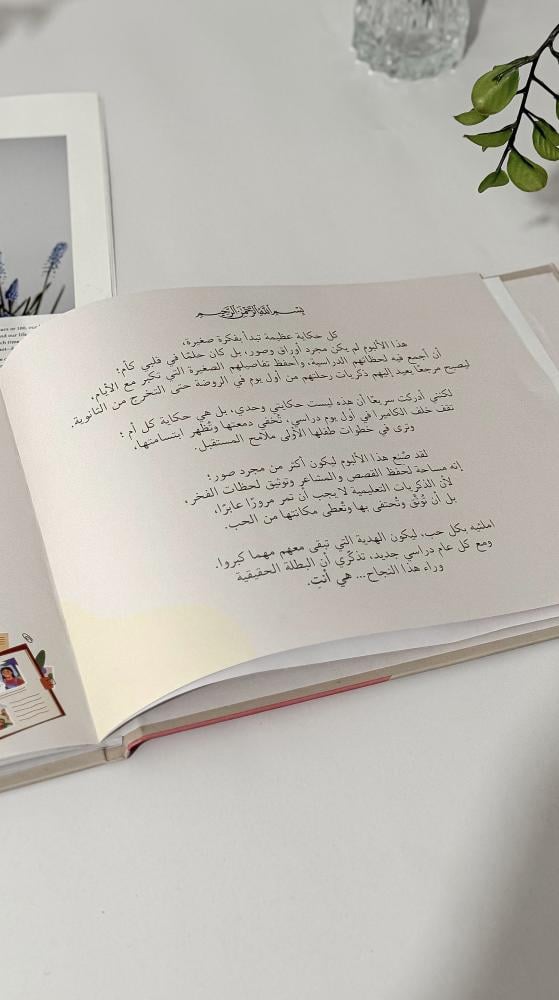 بسم الله الرحمن الرحيم
كل حكاية عظيمة تبدأ بفكرة صغيرة،
هذا الألبوم لم يكن مجرد أوراق وصور، بل كان حلمًا في قلبي كأم:
أن أجمع فيه لحظاتهم الدراسية، وأحفظ تفاصيلهم الصغيرة التي تكبر مع الأيام،
ليصبح مرجعًا يعيد إليهم ذكريات رحلتهم من أول يوم في الروضة حتى التخرج من الثانوية.
لكنني أدركت سريعًا أن هذه ليست حكايتي وحدي، بل هي حكاية كل أم :
تقف خلف الكاميرا في أول يوم دراسي، تُخفي دمعتها وتُظهر ابتسامتها،
وترى في خطوات طفلها الأولى ملامح المستقبل.
لقد صُنع هذا الألبوم ليكون أكثر من مجرد صور:
إنه مساحة لحفظ القصص والمشاعر وتوثيق لحظات الفخر،
لأن الذكريات التعليمية لا يجب أن تمر مرورًا عابرًا،
بل أن تُوثّق وتُحتفى بها وتُعطى مكانتها من الحب.
املئيه بكل حب، ليكون الهدية التي تبقى معهم مهما كبروا.
ومع كل عام دراسي جديد، تذكّري أن البطلة الحقيقية
وراء هذا النجاح... هي أنتِ.